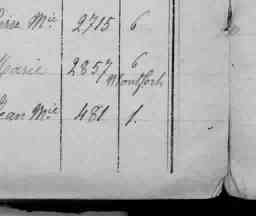 Mie 2715 6
Marie 2857 6
Montfort
Jean Mie 481 1.